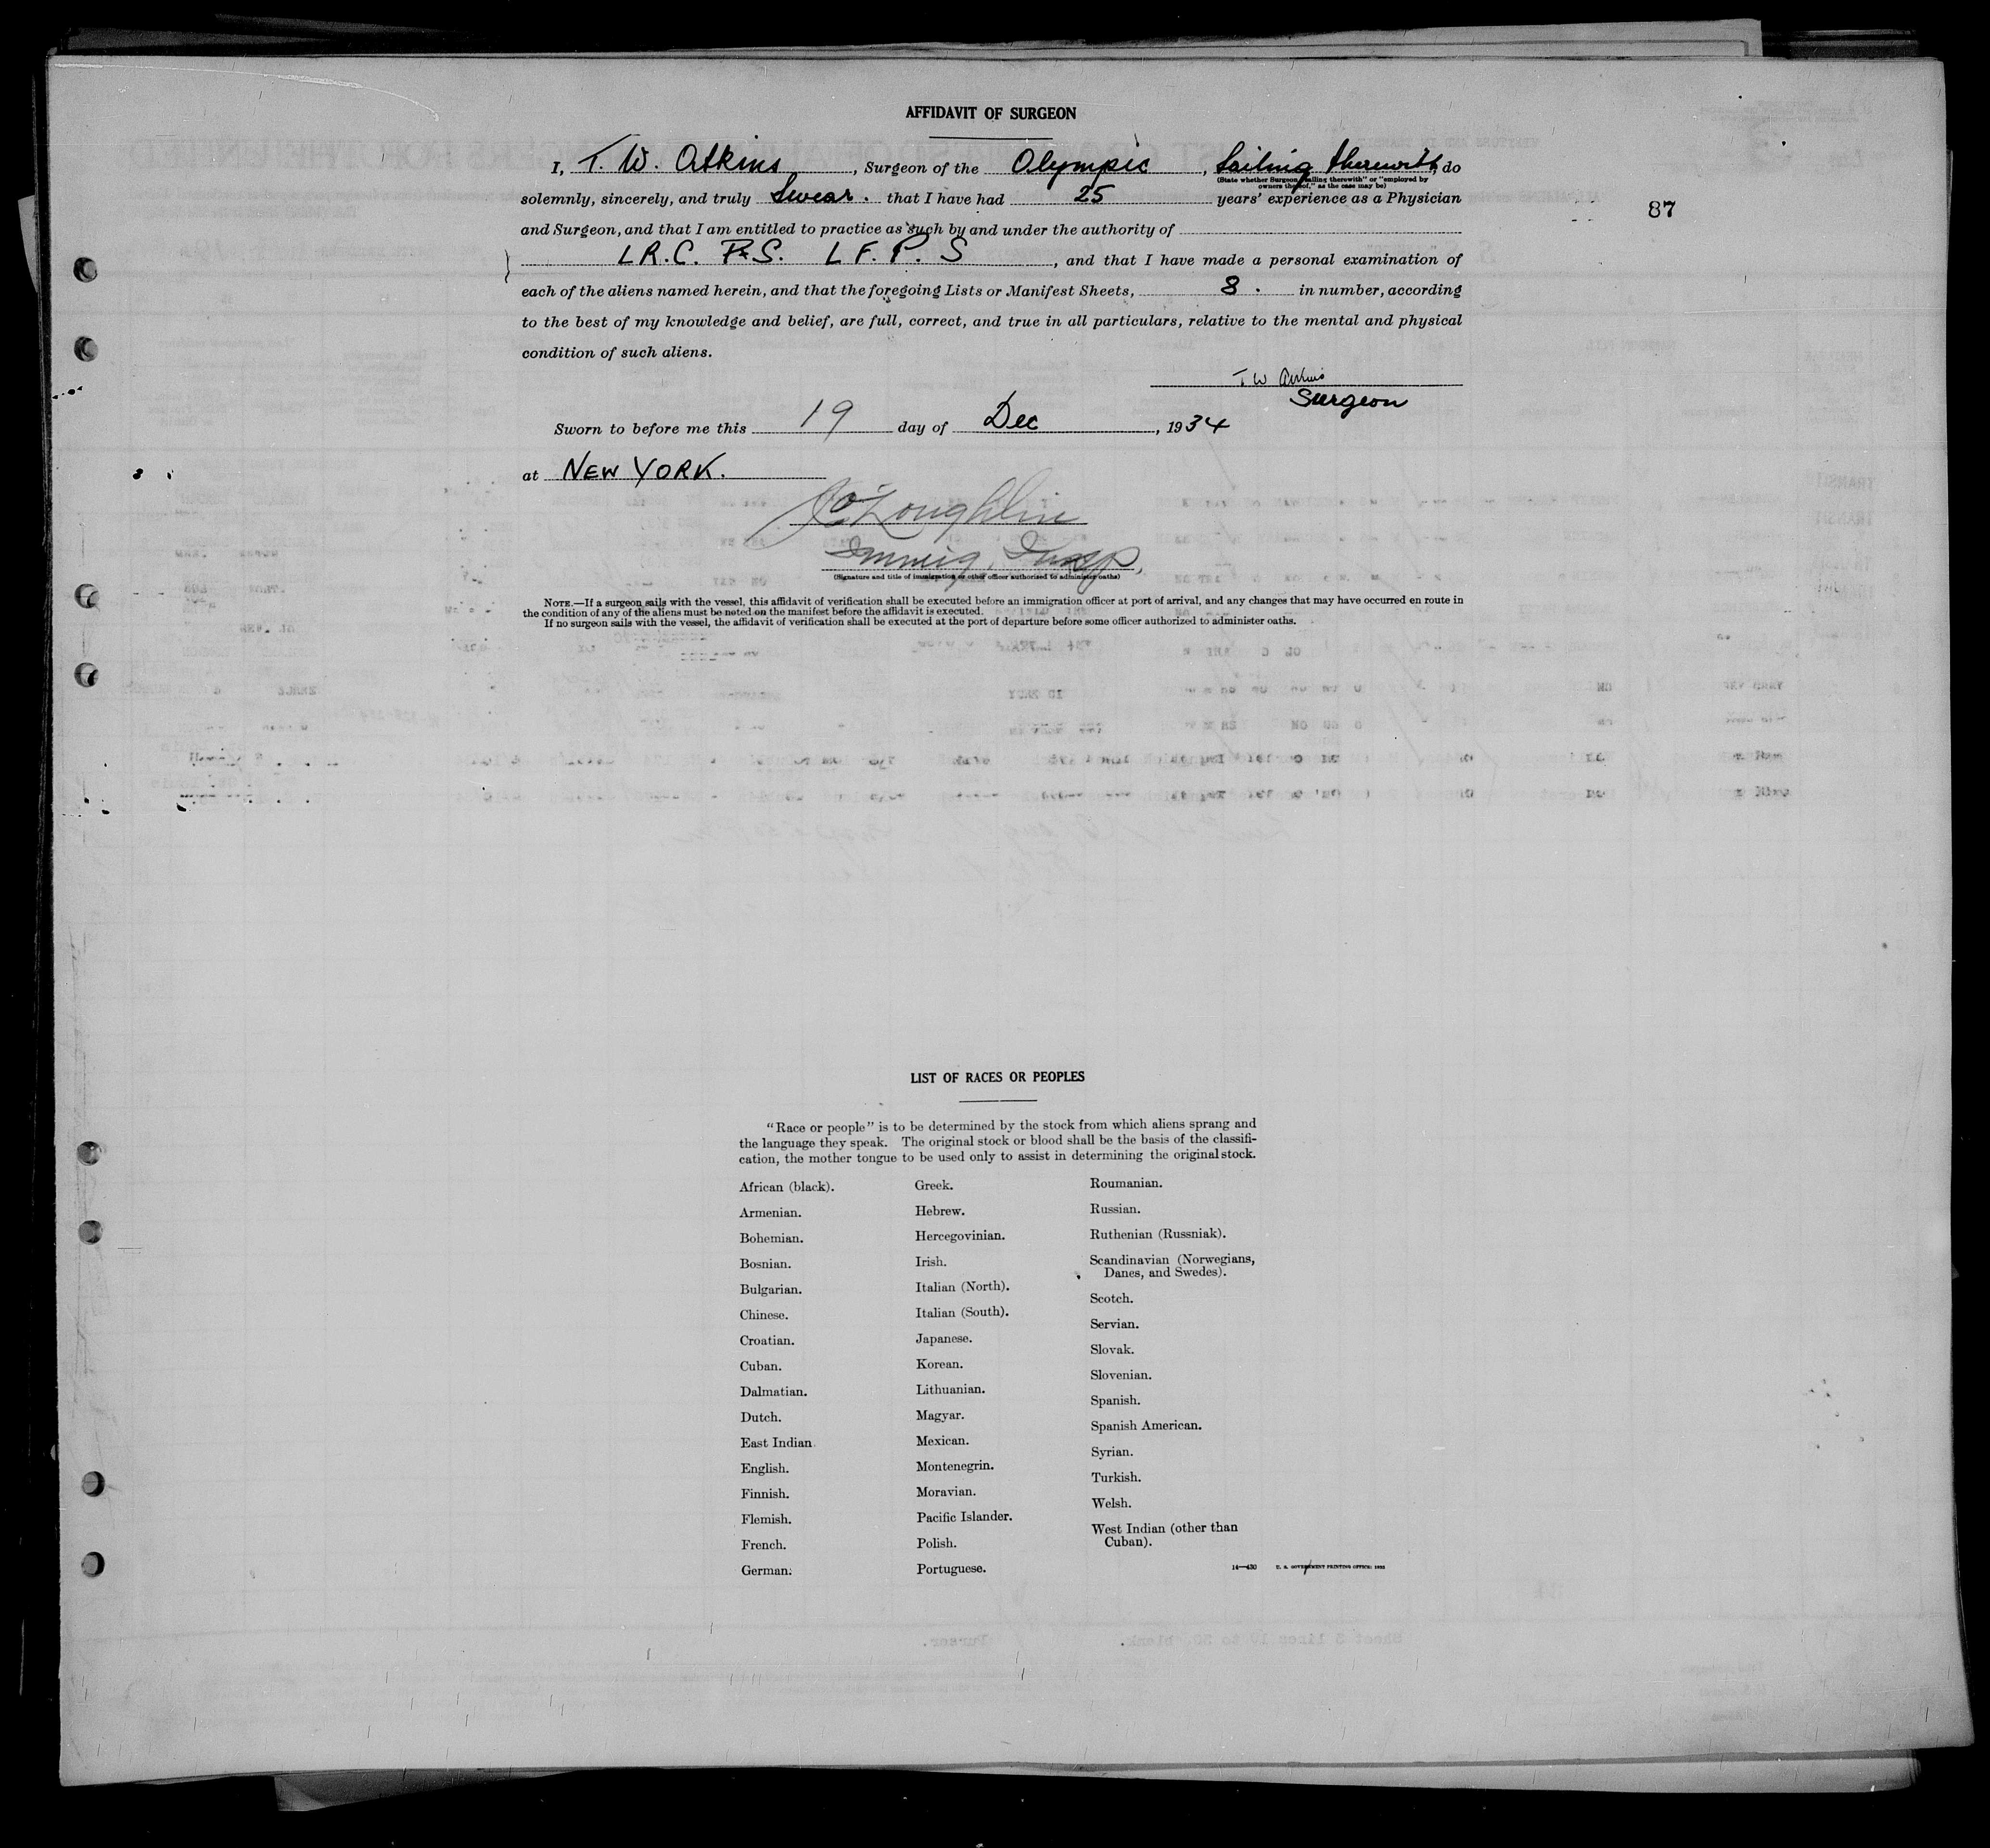 AFFIDAVIT OF SURGEON
I, T. W. Atkins, Surgeon of the Olympic, Sailing therewith, do
(State whether Surgeon "sailing therewith" or "employed by
owners thereof," as the case may be)
solemnly, sincerely, and truly Swear. that I have had 25 years' experience as a Physician
87
and Surgeon, and that I am entitled to practice as such by and under the authority of
L R.C. P.S. L F. P. S, and that I have made a personal examination of
each of the aliens named herein, and that the foregoing Lists or Manifest Sheets, 8. in number, according
to the best of my knowledge and belief, are full, correct, and true in all particulars, relative to the mental and physical
condition of such aliens.
T W Atkins
Surgeon
Sworn to before me this 19 day of Dec, 1934
at NEW YORK.
O'Loughlin
Immig. Insp.
(Signature and title of immigration or other officer authorized to administer oaths)
NOTE.—If a surgeon sails with the vessel, this affidavit of verification shall be executed before an immigration officer at port of arrival, and any changes that may have occurred en route in
the condition of any of the aliens must be noted on the manifest before the affidavit is executed.
If no surgeon sails with the vessel, the affidavit of verification shall be executed at the port of departure before some officer authorized to administer oaths.
LIST OF RACES OR PEOPLES
"Race or people" is to be determined by the stock from which aliens sprang and
the language they speak. The original stock or blood shall be the basis of the classifi-
cation, the mother tongue to be used only to assist in determining the original stock.
African (black).
Armenian.
Bohemian.
Bosnian.
Bulgarian.
Chinese.
Croatian.
Cuban.
Dalmatian.
Dutch.
East Indian
English.
Finnish.
Flemish.
French.
German.
Greek.
Hebrew.
Hercegovinian.
Irish.
Italian (North).
Italian (South).
Japanese.
Korean.
Lithuanian.
Magyar.
Mexican.
Montenegrin.
Moravian.
Pacific Islander.
Polish.
Portuguese.
Roumanian.
Russian.
Ruthenian (Russniak).
Scandinavian (Norwegians,
Danes, and Swedes).
Scotch.
Servian.
Slovak.
Slovenian.
Spanish.
Spanish American.
Syrian.
Turkish.
Welsh.
West Indian (other than
Cuban).
14—430 U. S. GOVERNMENT PRINTING OFFICE: